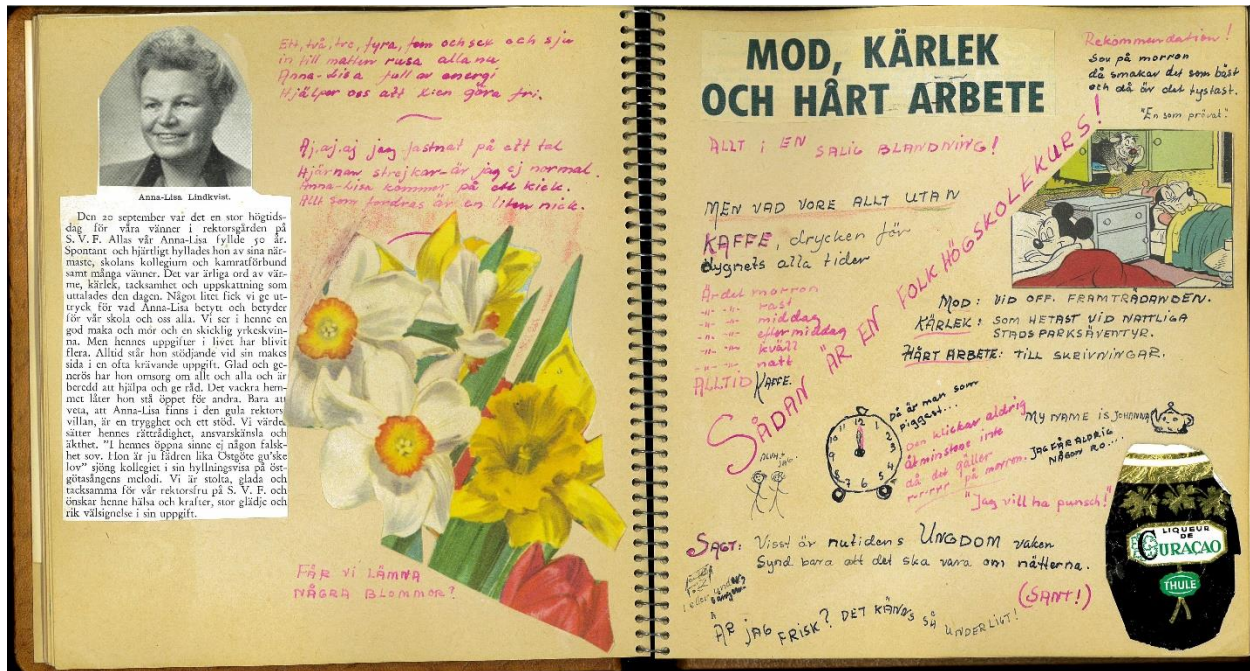 Anna-Lisa Lindkvist.
Den 20 september var det en stor högtids-
dag för våra vänner i rektorsgården på
S. V. F. Allas vår Anna-Lisa fyllde 50 år.
Spontant och hjärtligt hyllades hon av sina när-
maste, skolans kollegium och kamratförbund
samt många vänner. Det var ärliga ord av vär-
me, kärlek, tacksamhet och uppskattning som
uttalades den dagen. Något litet fick vi ge ut-
tryck för vad Anna-Lisa betytt och betyder
för vår skola och oss alla. Vi ser i henne en
god maka och mor och en skicklig yrkeskvin-
na. Men hennes uppgifter i livet har blivit
flera. Alltid står hon stödjande vid sin makes
sida i en ofta krävande uppgift. Glad och ge-
nerös har hon omsorg om allt och alla och är
beredd att hjälpa och ge råd. Det vackra hem-
met låter hon stå öppet för andra. Bara att
veta, att Anna-Lisa finns i den gula rektors-
villan, är en trygghet och ett stöd. Vi värde-
sätter hennes rättrådighet, ansvarskänsla och
äkthet. "I hennes öppna sinne ej någon falsk-
het sov. Hon är ju fädren lika Östgöte gu'ske
lov" sjöng kollegiet i sin hyllningsvisa på öst-
götasångens melodi. Vi är stolta, glada och
tacksamma för vår rektorsfru på S. V. F. och
önskar henne hälsa och krafter, stor glädje och
rik välsignelse i sin uppgift.
Ett, två, tre, fyra, fem och sex och sju
in till maten rusa alla nu
Anna-Lisa full av energi
Hjälper oss att kien göra fri.
Aj, aj, aj jag fastnat på ett tal
Hjärnan strejkar - är jag ej normal.
Anna-Lisa kommer på ett kick.
Allt som fordras är en liten nick.
FÅR VI LÄMNA
NÅGRA BLOMMOR?
MOD, KÄRLEK
OCH HÅRT ARBETE
ALLT I EN SALIG BLANDNING!
Rekommendation!
Sov på morron
då smakar det som bäst
och då är det tystast.
"En som prövat"
MEN VAD VORE ALLT UTAN
KAFFE, drycken för
dygnets alla tider
Är det morron
-"- -"- rast
-"- -"- middag
-"- -"- eftermiddag
-"- -"- kväll
-"- -"- natt
ALLTID KAFFE.
SÅDAN ÄR EN FOLKHÖGSKOLEKURS!
MOD: VID OFF. FRAMTRÄDANDEN.
KÄRLEK: SOM HETAST VID NATTLIGA
STADSPARKSÄVENTYR.
HÅRT ARBETE: TILL SKRIVNINGAR.
12
1
2
3
4
5
6
7
8
9
10
11
Då är man som
piggast...
Den klickar aldrig
åtminstone inte
då det gäller
r-r-rrr på morron.
MY NAME IS JOHANNA
JAG FÅR ALDRIG
NÅGON RO....
"Jag vill ha punsch!"
LIQUEUR
DE
CURAÇAO
THULE
SAGT: Visst är nutidens UNGDOM vaken
Synd bara att det ska vara om nätterna.
(SANT!)
ÄR JAG FRISK? DET KÄNNS SÅ UNDERLIGT!